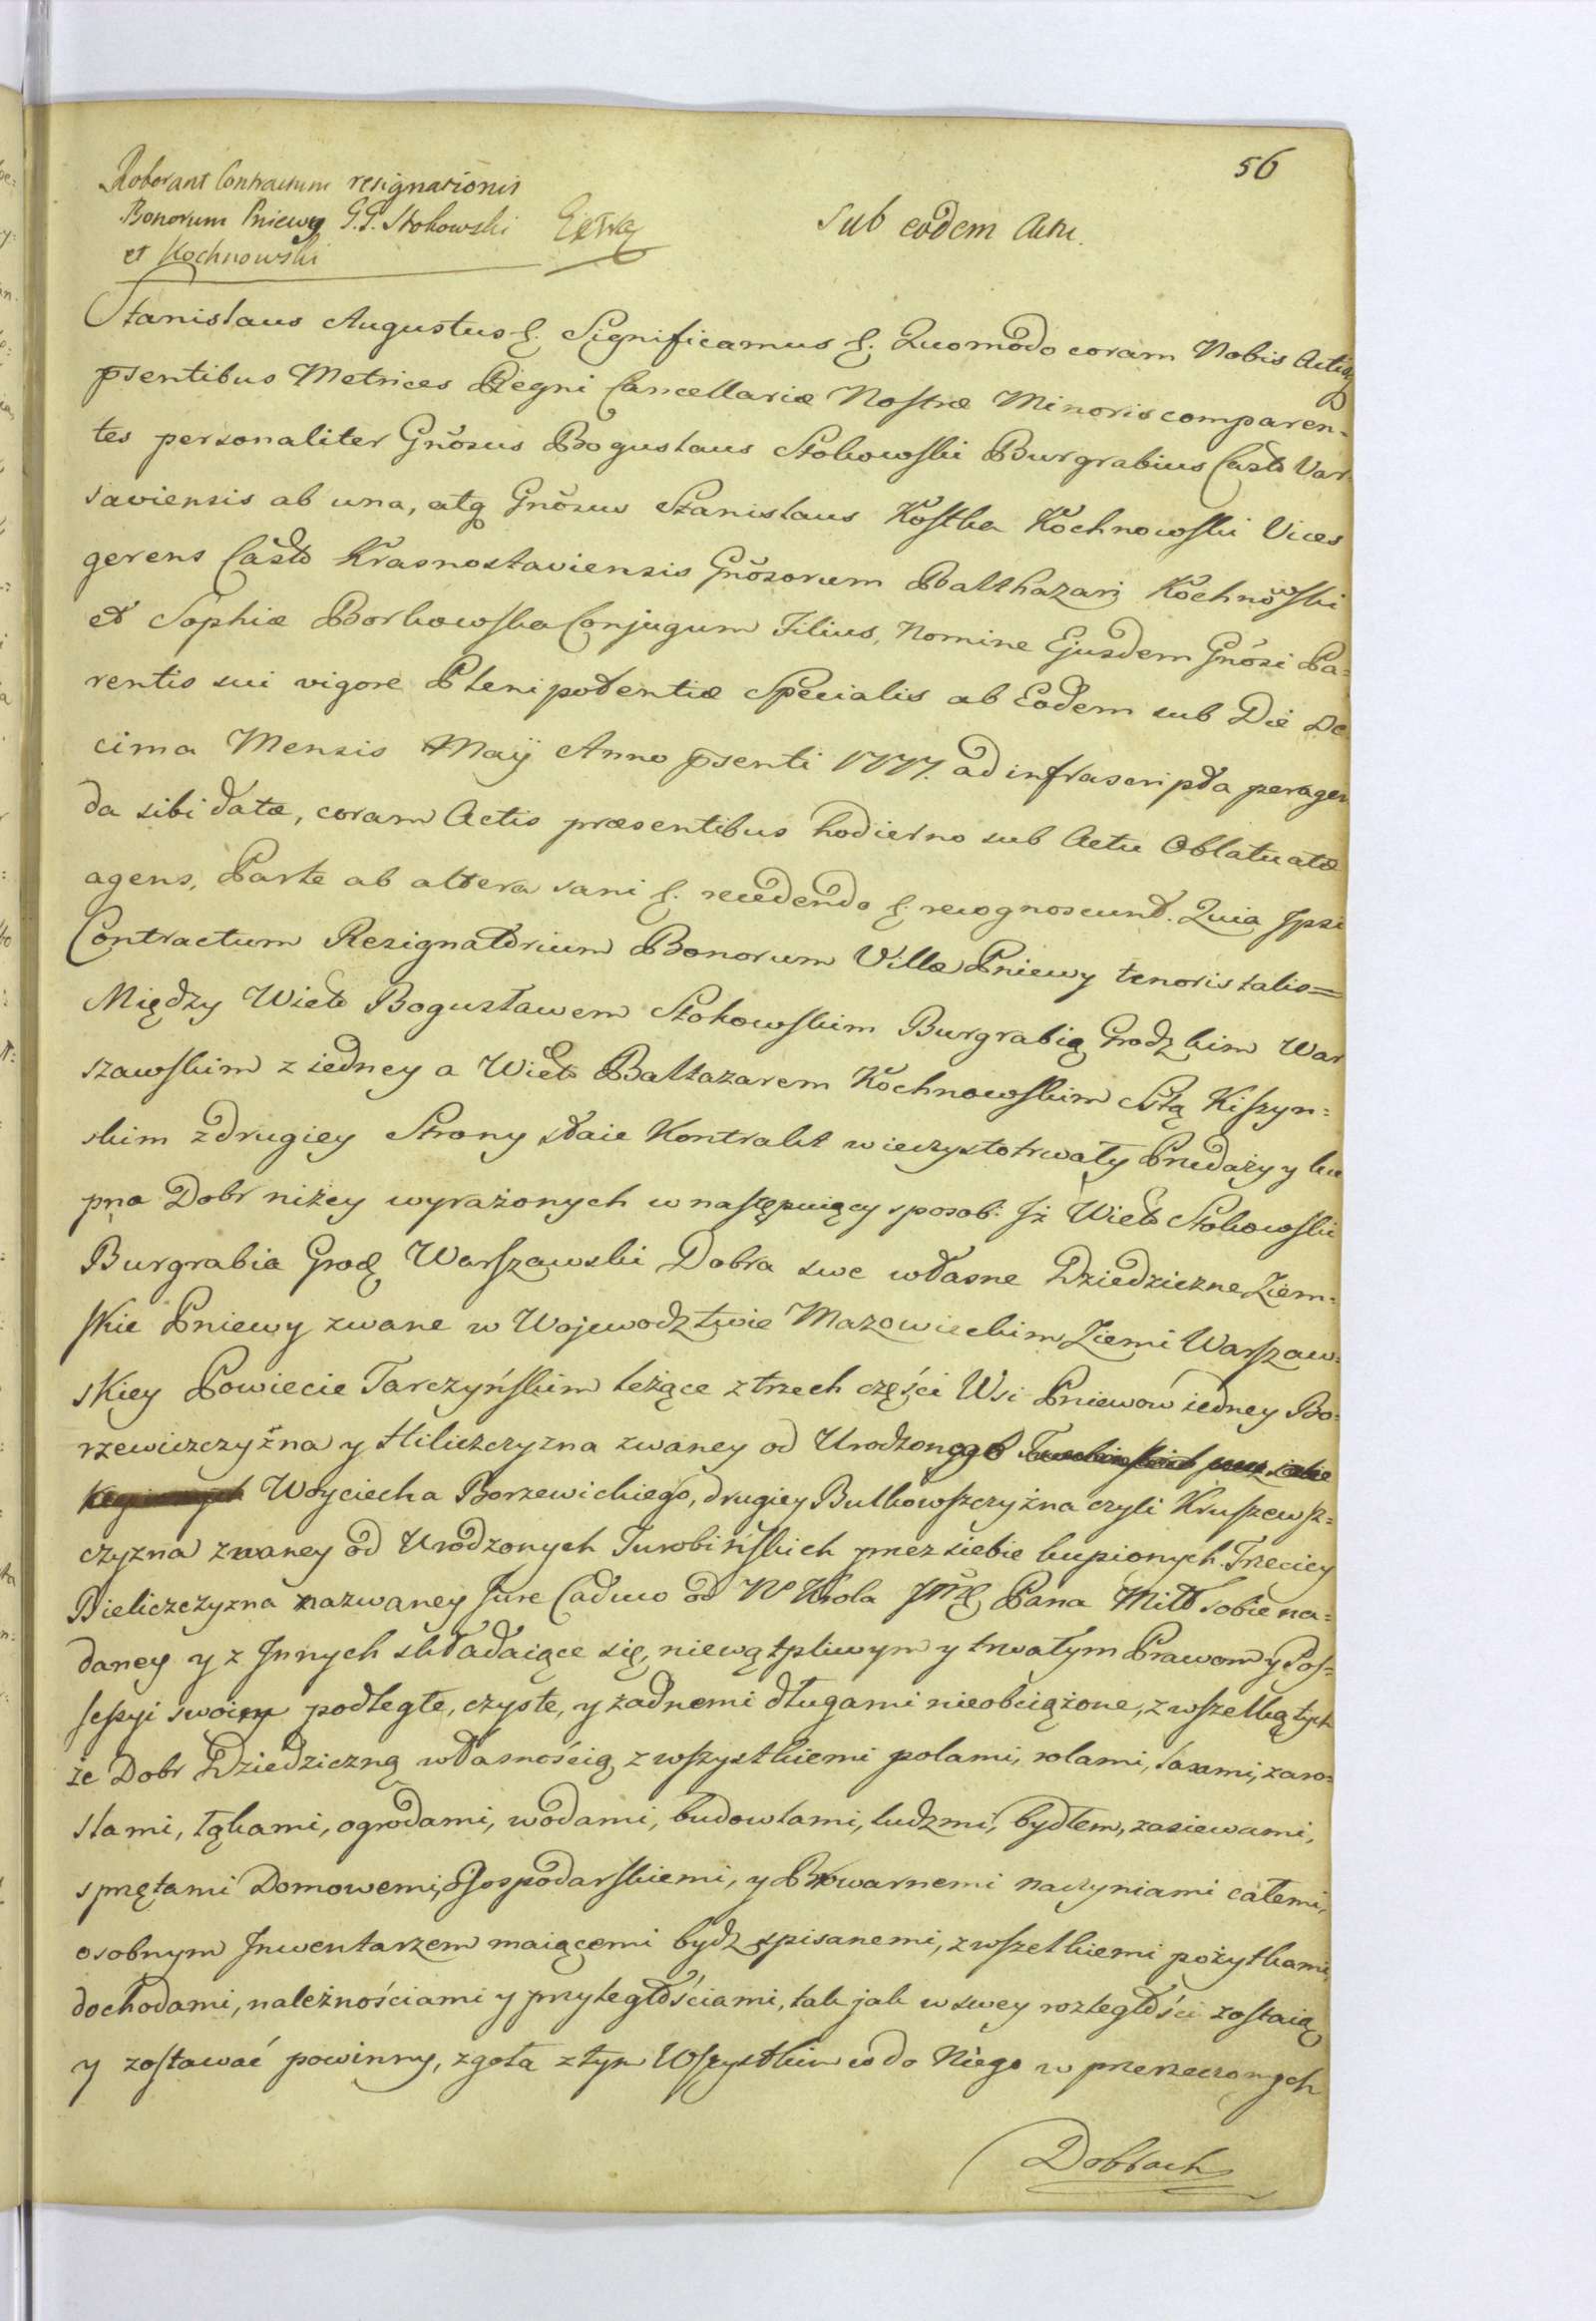 56
Roborant Contractum resignationis
Bonorum Pniewy G.G. Stokowski
et Kochnowski
Sub eodem Actu.
Stanislaus Augustus &. Significamus &. Quomodo coram Nobis Actisq
p̄sentibus Metrices Regni Cancellariæ Nostræ Minoris comparen-
tes personaliter Gnõsus Boguslaus Stokowski Burgrabius Castr Var-
saviensis ab una, atq Gnõsus Stanislaus Kostka Kochnowski Vices
gerens Castr Krasnostaviensis Gnõsorum Balthazari Kochnowski
et Sophiæ Borkowska Conjugum Filius, Nomine Ejusdem Gnõsi Pa=
rentis sui vigore Plenipotentiæ Specialis ab Eodem sub Die De
cima Mensis Maÿ Anno p̄senti 1777. ad infrascripta peragen
da sibi datæ, coram Actis præsentibus hodierno sub Actu Oblatuatæ
agens, Parte ab altera sani &. recedendo &. recognoscunt. Quia Ipsi
Contractum Resignatorium Bonorum Villæ Pniewy tenoris talis=
Między Wielo Bogusławem Stokowskim Burgrabią Grodzkim War
szawskim z iedney a Wielo Baltazarem Kochnowskim Sstą Kiszyn=
skim z drugiey Strony staie Kontrakt wieczystotrwały Przedaży y ku
pna Dobr niżey wyrażonych w następuiący sposob: Iż Wielo Stokowski
Burgrabia Grodz Warszawski Dobra swe własne Dziedziczne Ziem=
skie Pniewy zwane w Wojewodztwie Mazowieckim Ziemi Warszaw=
skiey Powiecie Tarczyńskim leżące z trzech części Wsi Pniewow iedney Bo=
rzewiczczyżna y Hiliczczyzna zwaney od Urodzonego
Woyciecha Borzewickiego, drugiey Bulkowszczyżna czyli Kruszewsz=
czyzna zwaney od Urodzonych Turobińskich przez siebie kupionych. Trzeciey
Bieliczczyzna nazwaney Jure Caduco od Krola Pana Miłł sobie na=
daney y z Innych składaiące się, niewątpliwym y trwałym Prawom y Pos=
sessyi swoiey podległe, czyste, y żadnemi długami nieobciążone, z wszelką tych
że Dobr Dziedziczną własnością, z wszystkiemi polami, rolami, lasami, zaro=
slami, łąkami, ogrodami, wodami, budowlami, ludzmi, bydłem, zasiewami,
sprzętami Domowemi, Gospodarskiemi, y Browarnemi naczyniami całemi,
osobnym Inwentarzem maiącemi bydz spisanemi, z wszelkiemi pożytkami
dochodami, należnościami y przyległościami, tak jak w swey rozległości zostaią
y zostawać powinny, zgoła z tym Wszystkim co do Niego w przerzeczonych
Dobrach